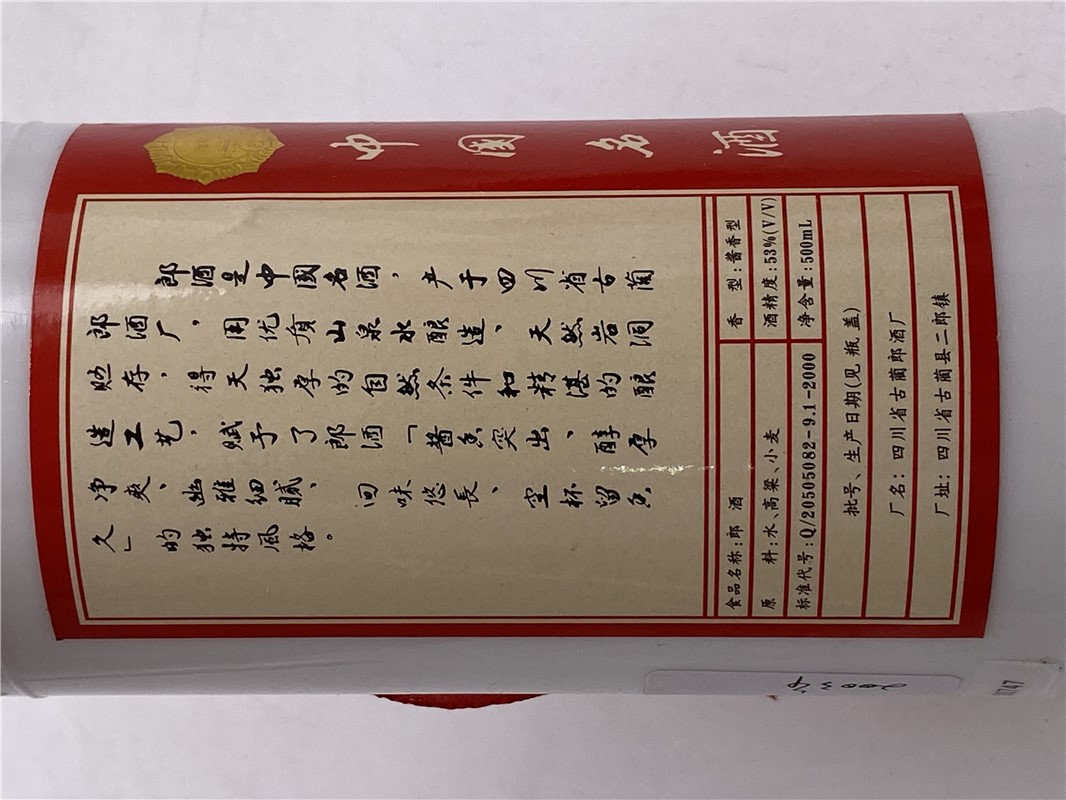 中国名酒
郎酒是中國名酒，产于四川省古蔺
郎酒厂，用优质山泉水酿造、天然岩洞
贮存，得天独厚的自然条件和精湛的酿
造工艺，赋予了郎酒「酱香突出、醇厚
净爽、幽雅细腻、回味悠長、空杯留香
久」的独特風格。
食品名称:郎 酒 香 型:酱香型
原 料:水、高粱、小麦 酒精度:53%(V/V)
标准代号:Q/20505082-9.1-2000 净含量:500mL
批号、生产日期(见瓶盖)
厂名: 四川省古蔺郎酒厂
厂址: 四川省古蔺县二郎镇